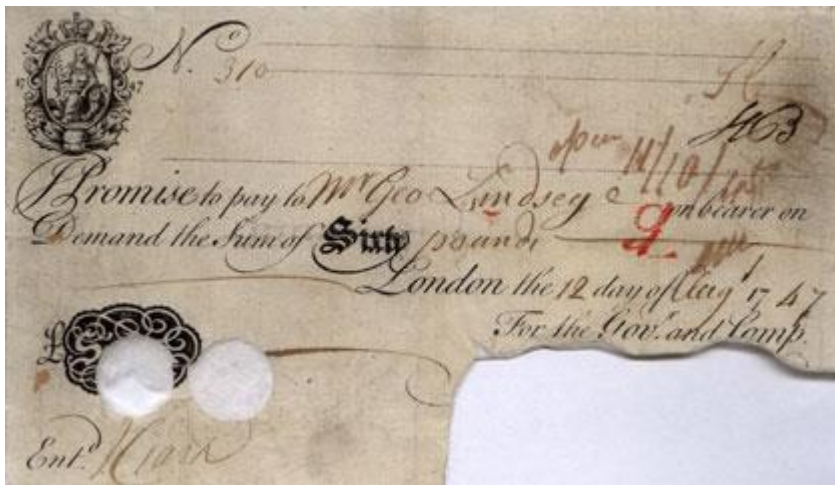 No. 310
I Promise to pay to Mr Geo Lindsey or bearer on
Demand the Sum of Sixty pounds
London the 12 day of Augt 1747
For the Govr. and Comp.
£ S
Entd.